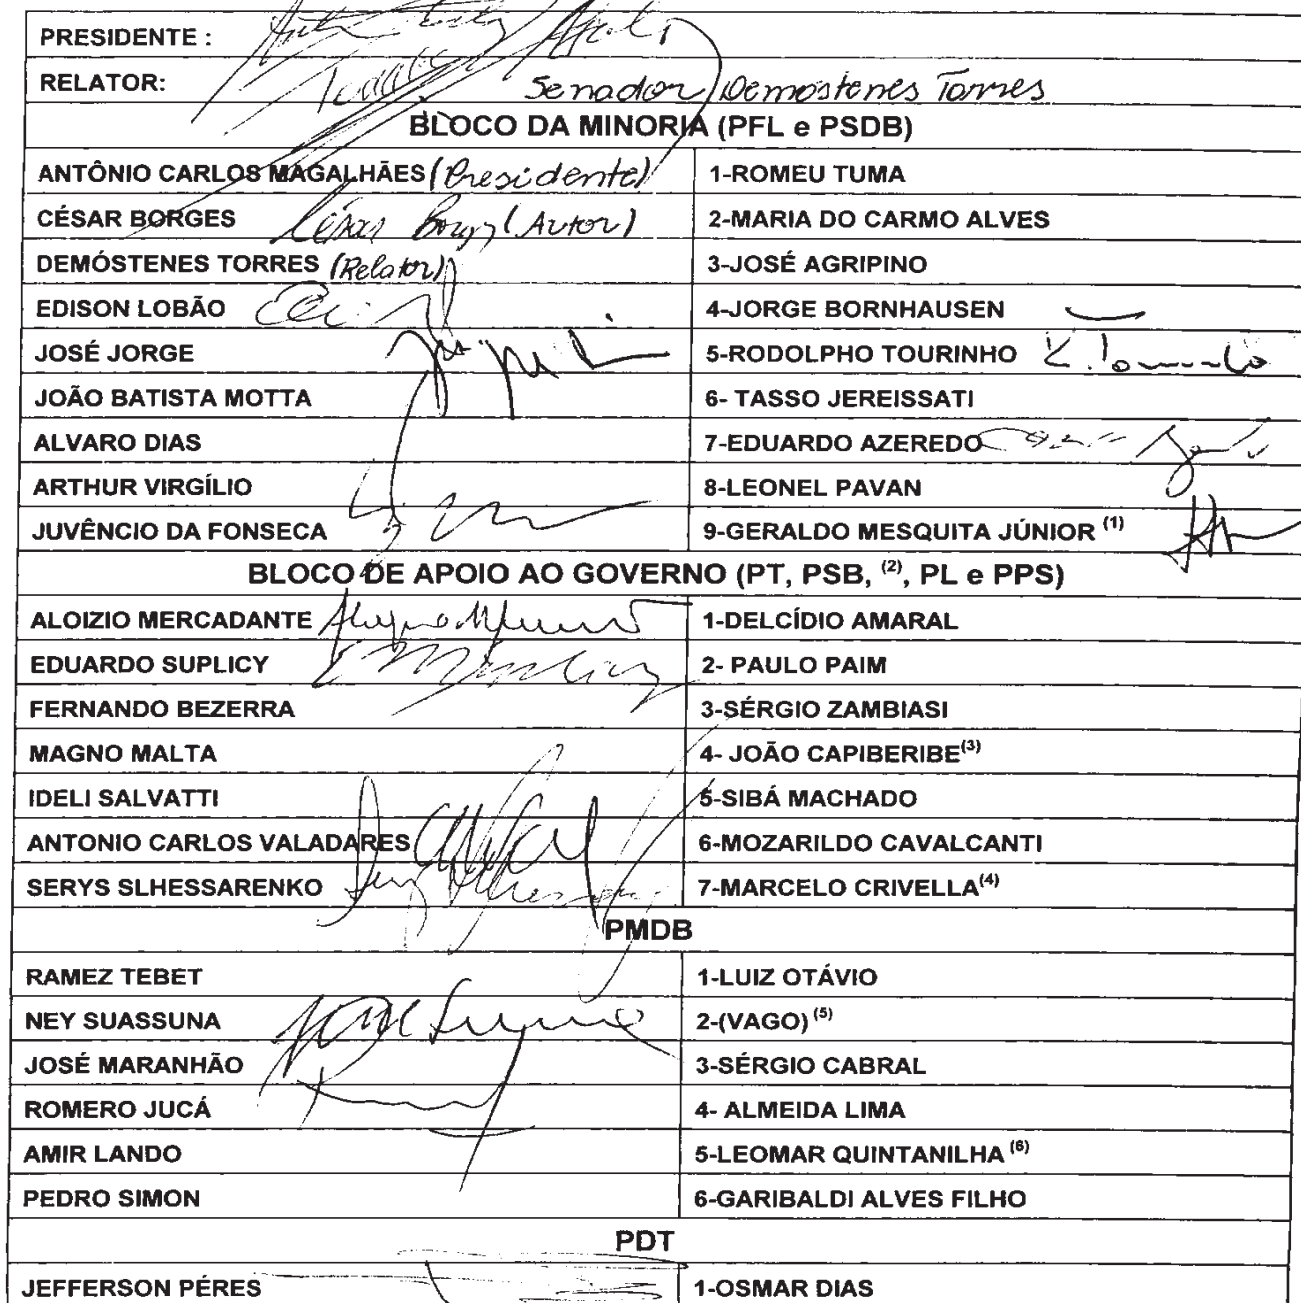 PRESIDENTE :
RELATOR: Senador Demostenes Torres
BLOCO DA MINORIA (PFL e PSDB)
ANTÔNIO CARLOS MAGALHÃES (Presidente) 1-ROMEU TUMA
CÉSAR BORGES César Borges (Autor) 2-MARIA DO CARMO ALVES
DEMÓSTENES TORRES (Relator) 3-JOSÉ AGRIPINO
EDISON LOBÃO 4-JORGE BORNHAUSEN
JOSÉ JORGE 5-RODOLPHO TOURINHO
JOÃO BATISTA MOTTA 6- TASSO JEREISSATI
ALVARO DIAS 7-EDUARDO AZEREDO
ARTHUR VIRGÍLIO 8-LEONEL PAVAN
JUVÊNCIO DA FONSECA 9-GERALDO MESQUITA JÚNIOR (1)
BLOCO DE APOIO AO GOVERNO (PT, PSB, (2), PL e PPS)
ALOIZIO MERCADANTE 1-DELCÍDIO AMARAL
EDUARDO SUPLICY 2- PAULO PAIM
FERNANDO BEZERRA 3-SÉRGIO ZAMBIASI
MAGNO MALTA 4- JOÃO CAPIBERIBE(3)
IDELI SALVATTI 5-SIBÁ MACHADO
ANTONIO CARLOS VALADARES 6-MOZARILDO CAVALCANTI
SERYS SLHESSARENKO 7-MARCELO CRIVELLA(4)
PMDB
RAMEZ TEBET 1-LUIZ OTÁVIO
NEY SUASSUNA 2-(VAGO) (5)
JOSÉ MARANHÃO 3-SÉRGIO CABRAL
ROMERO JUCÁ 4- ALMEIDA LIMA
AMIR LANDO 5-LEOMAR QUINTANILHA (6)
PEDRO SIMON 6-GARIBALDI ALVES FILHO
PDT
JEFFERSON PÉRES 1-OSMAR DIAS